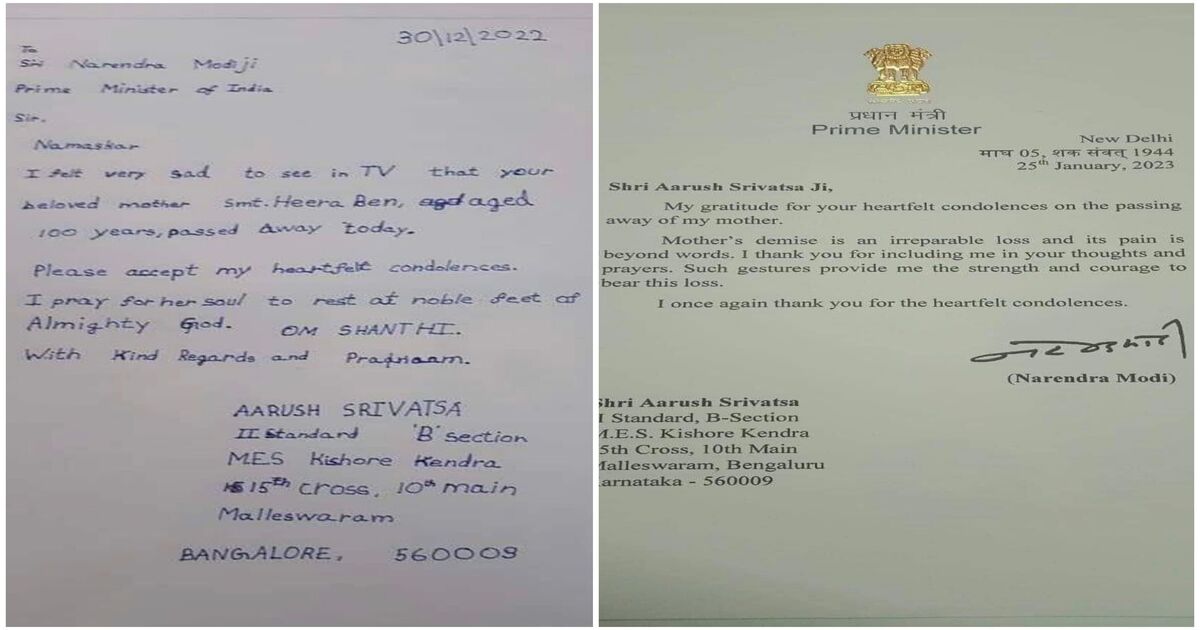 30/12/2022
To
Sri Narendra Modiji
Prime Minister of India
Sir.
Namaskar
I felt very sad to see in TV that your
beloved mother Smt. Heera Ben, aged
100 years, passed Away Today.
Please accept my heartfelt condolences.
I pray for her soul to rest at noble feet of
Almighty God. OM SHANTHI.
With Kind Regards and Pradnaam.
AARUSH SRIVATSA
II Standard 'B' section
MES Kishore Kendra
15th cross, 10th main
Malleswaram
BANGALORE, 560009
प्रधान मंत्री
Prime Minister
New Delhi
माघ 05, शक संवत् 1944
25th January, 2023
Shri Aarush Srivatsa Ji,
My gratitude for your heartfelt condolences on the passing
away of my mother.
Mother's demise is an irreparable loss and its pain is
beyond words. I thank you for including me in your thoughts and
prayers. Such gestures provide me the strength and courage to
bear this loss.
I once again thank you for the heartfelt condolences.
(Narendra Modi)
Shri Aarush Srivatsa
I Standard, B-Section
M.E.S. Kishore Kendra
5th Cross, 10th Main
Malleswaram, Bengaluru
arnataka - 560009